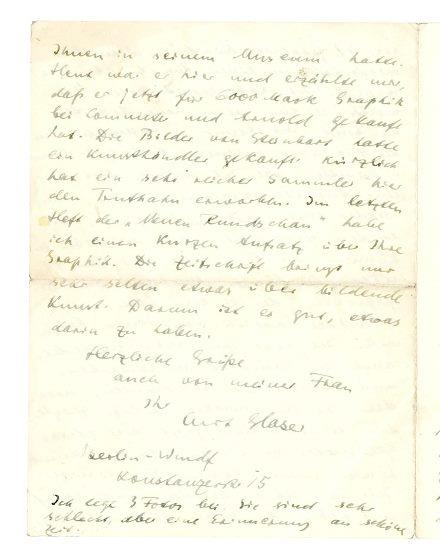 Ihnen in seinem Museum hatte.
Heut war er hier und erzählte mir,
daß er jetzt für 6000 Mark Graphik
bei Commeter und Arnold gekauft
hat. Die Bilder von hatte
ein Kunsthändler gekauft. Kürzlich
hat ein sehr reicher Sammler hier
den Truthahn erworben. Im letzten
Heft der „Neuen Rundschau" habe
ich einen kurzen Aufsatz über Ihre
Graphik. Die Zeitschrift bringt nur
sehr selten etwas über bildende
Kunst. Darum ist es gut, etwas
darin zu haben.
Herzliche Grüße
auch von meiner Frau
Ihr
Curt Glaser
Berlin-Wilmdf
Konstanzerstr 15
Ich lege 3 Fotos bei. Sie sind sehr
schlecht, aber eine Erinnerung an schöne
Zeit.